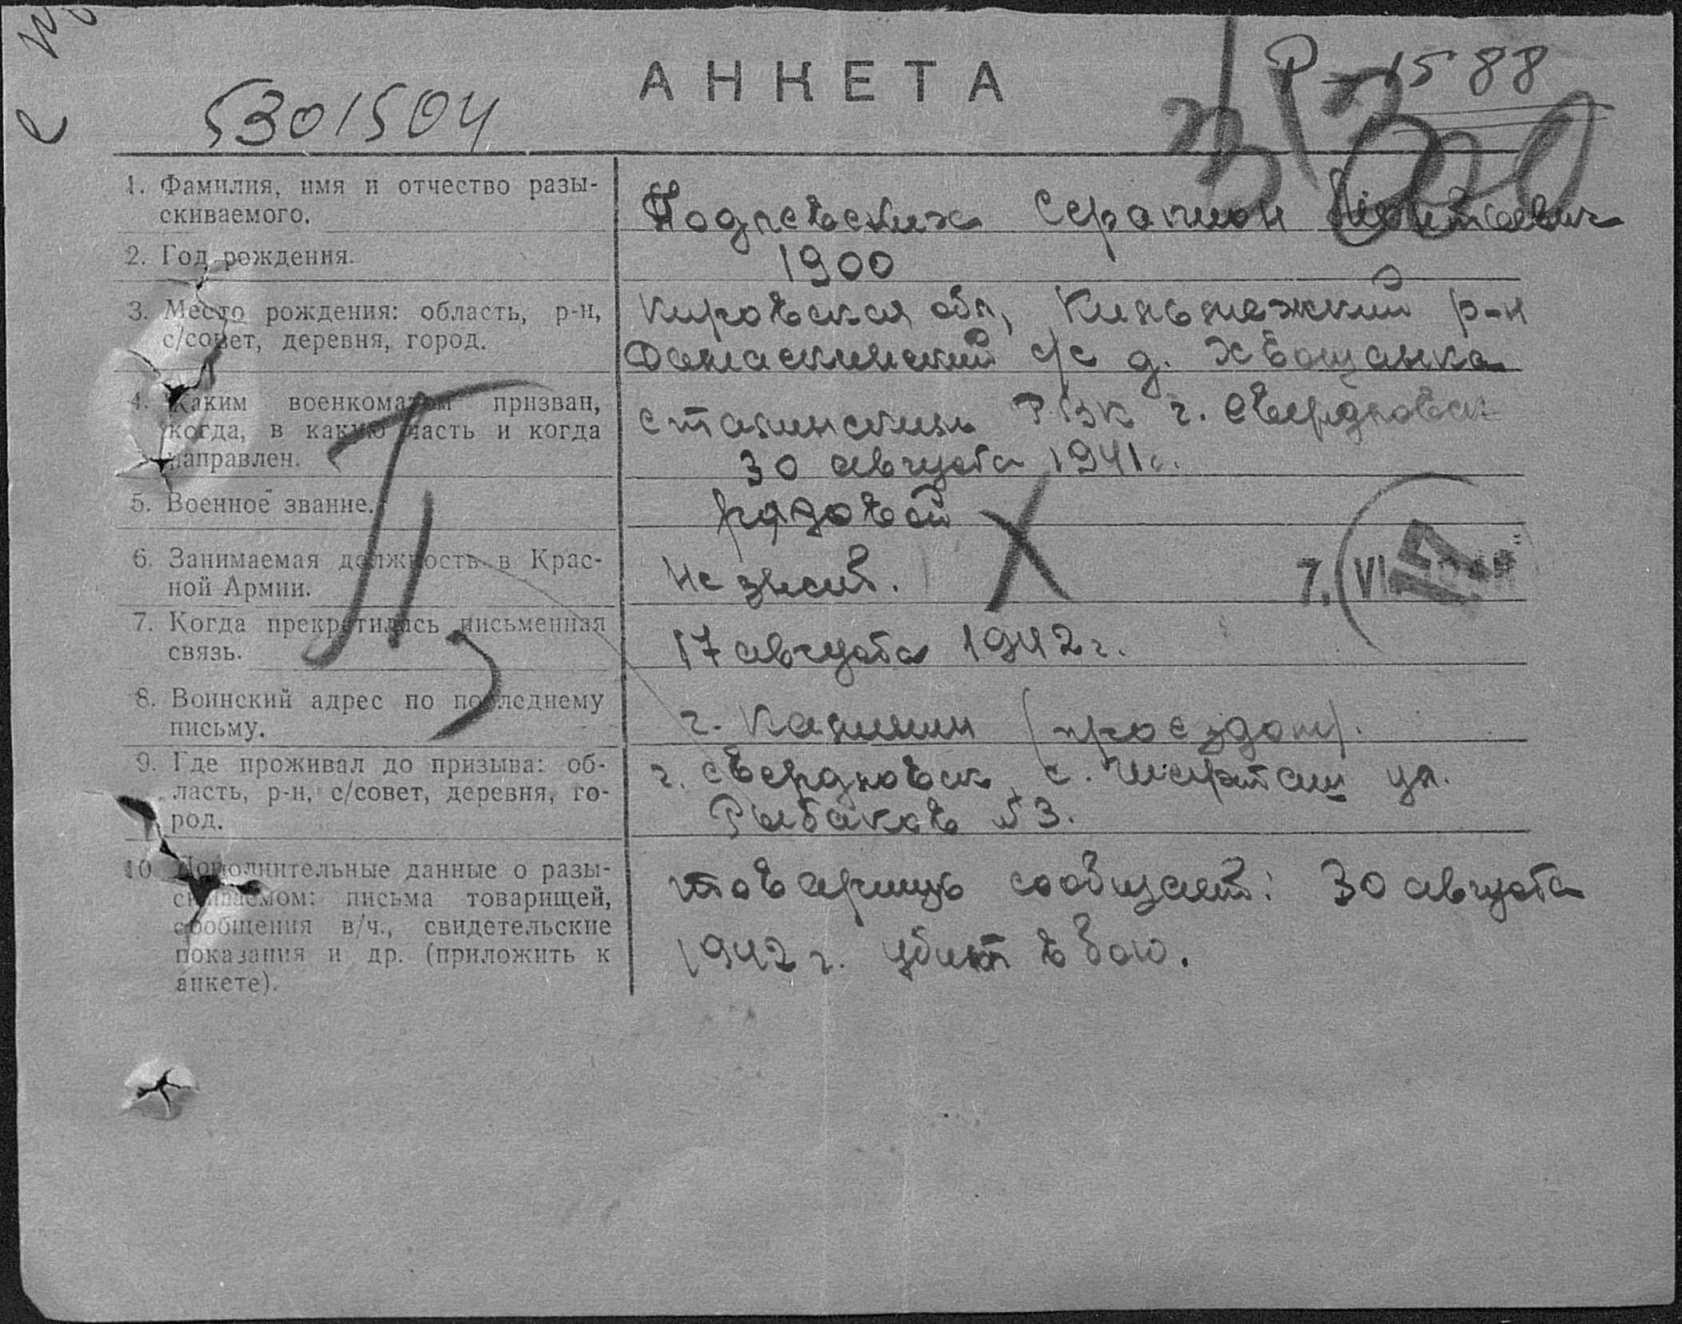 АНКЕТА
Р-1588
5301504
1. Фамилия, имя и отчество разы-
скиваемого.
Подлевских Серапион
2. Год рождения.
1900
3. Место рождения: область, р-н,
с/совет, деревня, город.
Кировская обл, Кильмезкий р-н
Дамаскинский с/с д. Хвощанка
4. Каким военкоматом призван,
когда, в какую часть и когда
направлен.
Сталинским РВК г. Свердловск
30 августа 1941г.
5. Военное звание.
рядовой
6. Занимаемая должность в Крас-
ной Армии.
Не знает.
7. VI
7. Когда прекратилась письменная
связь.
17 августа 1942 г.
8. Воинский адрес по последнему
письму.
г. Калинин (проездом).
9. Где проживал до призыва: об-
ласть, р-н, с/совет, деревня, го-
род.
г. Свердловск, с. Шарташ ул.
Рыбаков №3.
10. Дополнительные данные о разы-
скиваемом: письма товарищей,
сообщения в/ч., свидетельские
показания и др. (приложить к
анкете).
товарищь сообщает: 30 августа
1942 г. убит в бою.